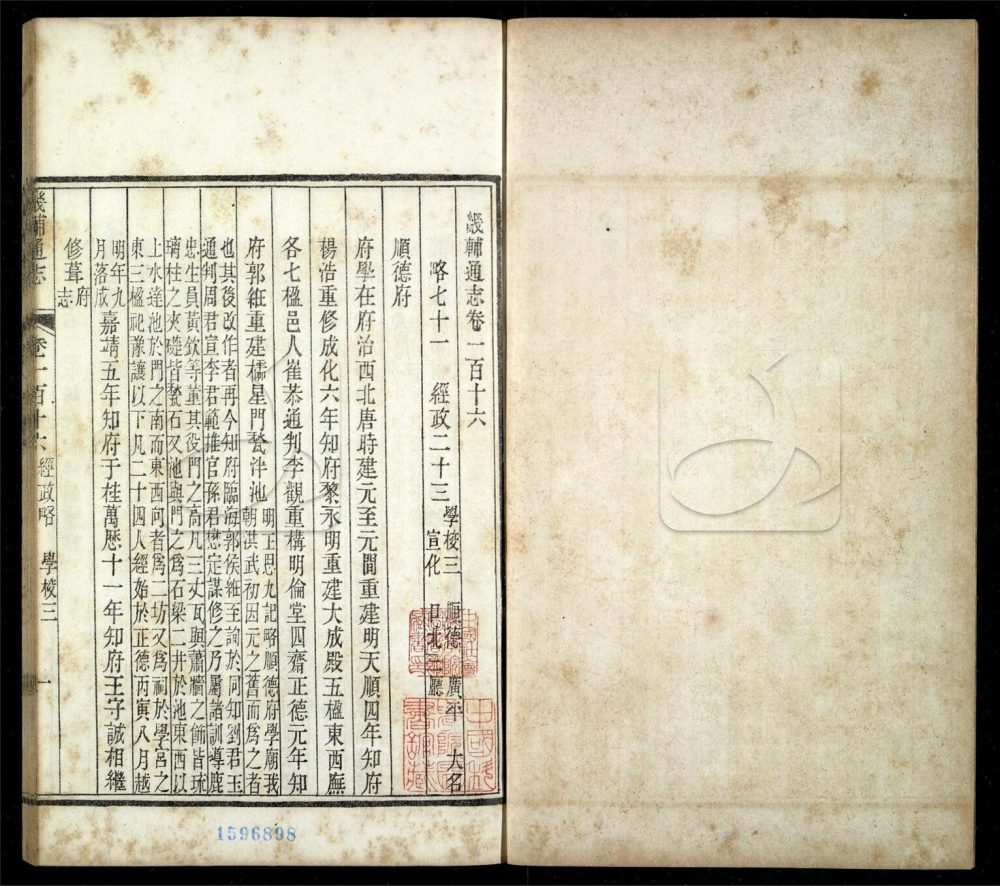 畿輔通志卷一百十六
略七十一　經政二十三　學校三　順德　廣平　大名
宣化　口北三廳
順德府
府學在府治西北唐時建元至元間重建明天順四年知府
楊浩重修成化六年知府黎永明重建大成殿五楹東西廡
各七楹邑人崔恭通判李觀重構明倫堂四齋正德元年知
府郭紝重建櫺星門甃泮池
明王恩九記略順德府學廟我
朝洪武初因元之舊而爲之者
也其後改作者再今知府臨海郭侯紝至詢於同知劉君玉
通判周君宣李君範推官孫君懋定謀修之乃屬諸訓導鹿
忠生員黃欽等董其役門之高凡三丈瓦與蕭牆之飾皆琉
璃柱之夾礎皆甃石又池與門之爲石梁二井於池東西以
上水達池於門之南而東西向者爲二坊又爲祠於學宮之
東三楹祀豫讓以下凡二十四人經始於正德丙寅八月越
明年九
月落成
嘉靖五年知府于桂萬厯十一年知府王守誠相繼
修葺府
志
畿輔通志
卷一百十六　經政略　學校三
一
1596898